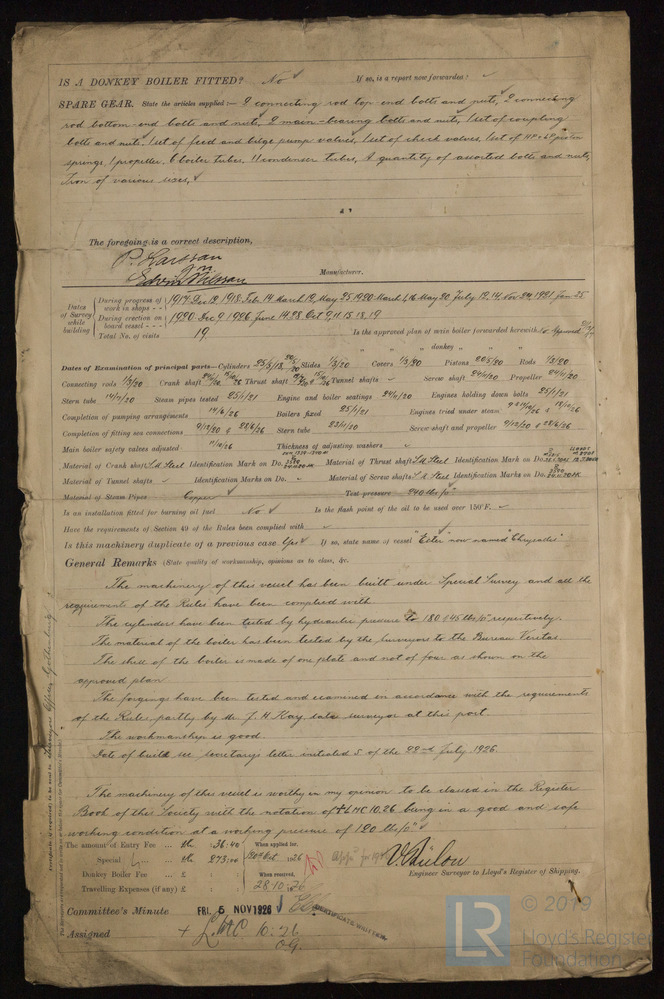 IS A DONKEY BOILER FITTED? No If so, is a report now forwarded?
SPARE GEAR. State the articles supplied:— 2 connecting rod top end bolts and nuts, 2 connecting
rod bottom end bolts and nuts, 2 main-bearing bolts and nuts, 1 set of coupling
bolts and nuts, 1 set of feed and bilge pump valves, 1 set of check valves, 1 set of HP & LP piston
springs, 1 propeller, 6 boiler tubes, 11 condenser tubes, A quantity of assorted bolts and nuts,
Iron of various sizes,
The foregoing is a correct description,
Manufacturer.
Dates of Survey while building
During progress of work in shops - - 1917 Dec 12, 1918 Feb. 14 March 12, May 25 1920 March 1, 16 May 20 July 12. 14. Nov 24. 1921 Jan 25
During erection on board vessel - - - 1920 Dec 9 1926 June 14. 28 Oct 9, 11. 15. 18. 19
Total No. of visits 19. Is the approved plan of main boiler forwarded herewith
" " " donkey " " "
Dates of Examination of principal parts—Cylinders 25/5/18 20/5/20 Slides 1/3/20 Covers 1/3/20 Pistons 20/5/20 Rods 1/3/20
Connecting rods 1/3/20 Crank shaft Thrust shaft Tunnel shafts Screw shaft 24/11/20 Propeller 24/11/20
Stern tube 14/7/20 Steam pipes tested 25/1/21 Engine and boiler seatings 24/11/20 Engines holding down bolts 25/1/21
Completion of pumping arrangements 14/6/26 Boilers fixed 25/1/21 Engines tried under steam
Completion of fitting sea connections 9/12/20 & 28/6/26 Stern tube Screw shaft and propeller 9/12/20 & 28/6/26
Main boiler safety valves adjusted 11/10/26 Thickness of adjusting washers
Material of Crank shaft S.M Steel Identification Mark on Do. Material of Thrust shaft S.M Steel Identification Mark on Do.
Material of Tunnel shafts Identification Marks on Do. Material of Screw shafts S.M Steel Identification Marks on Do.
Material of Steam Pipes Copper Test pressure 240 lbs/□"
Is an installation fitted for burning oil fuel No Is the flash point of the oil to be used over 150°F.
Have the requirements of Section 49 of the Rules been complied with
Is this machinery duplicate of a previous case Yes If so, state name of vessel "Ester" now named
General Remarks (State quality of workmanship, opinions as to class, &c.
The machinery of this vessel has been built under Special Survey and all the
requirements of the Rules have been complied with
The cylinders have been tested by hydraulic pressure to 180 & 45 lbs/□" respectively.
The material of the boiler has been tested by the Surveyors to the Bureau Veritas.
The shell of the boiler is made of one plate and not of four as shown on the
approved plan.
The forgings have been tested and examined in accordance with the requirements
of the Rules, partly by Mr. J. H. Kay late surveyor at this port.
The workmanship is good.
Date of build see Secretary's letter initialed S of the 22nd July 1926.
The machinery of this vessel is worthy in my opinion to be classed in the Register
Book of this Society with the notation of +LMC 10.26 being in a good and safe
working condition at a working pressure of 120 lbs/□"
The amount of Entry Fee ... Kr. : 36.40 When applied for,
Special ... Kr. 273.00 1926
Donkey Boiler Fee ... £ : : When received,
Travelling Expenses (if any) £ : : 28.10.26
Engineer Surveyor to Lloyd's Register of Shipping.
Committee's Minute FRI. 5 NOV 1926
CERTIFICATE WRITTEN.
Assigned + LMC 10.26
O.G.
© 2019
LR
Lloyd's Register
Foundation